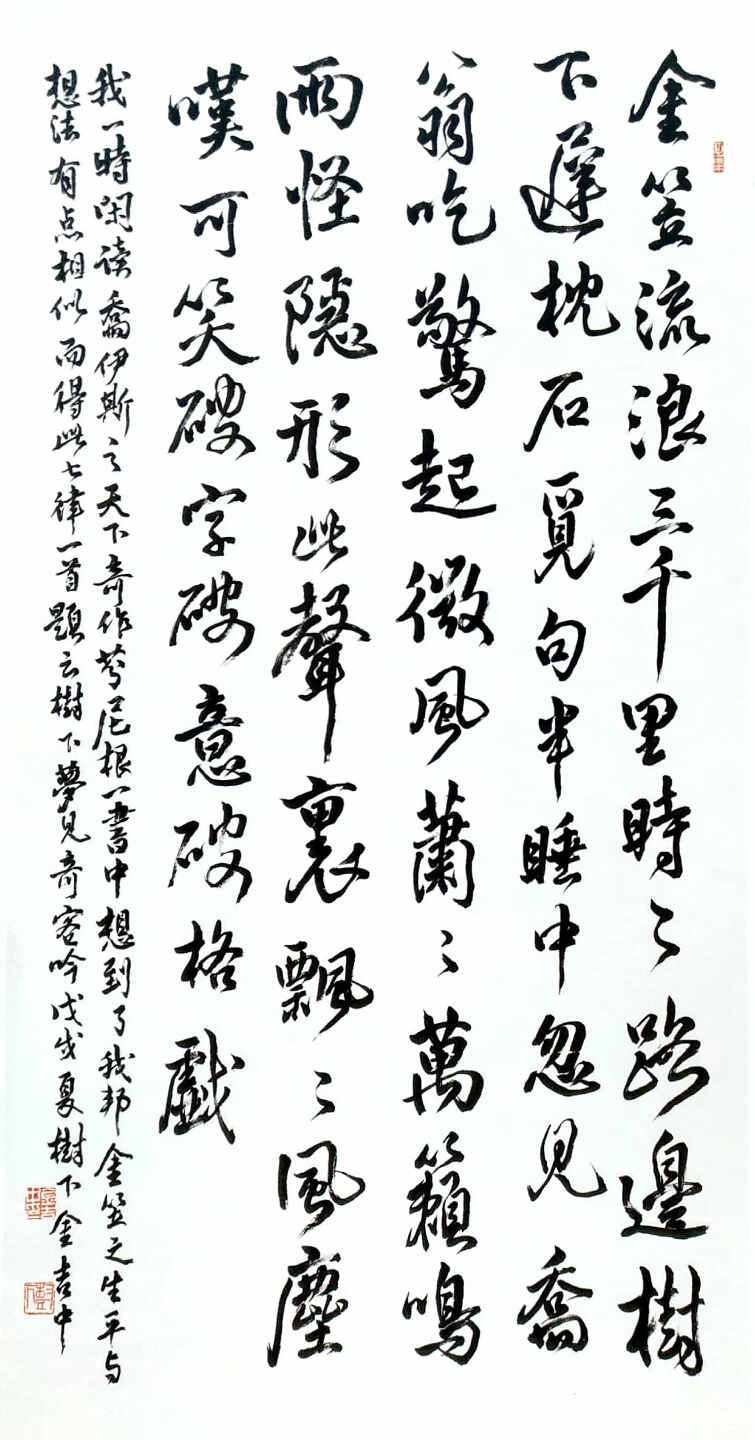 金笠流浪三千里時〻路邊樹
下遲枕石覓句半睡中忽見喬
翁吃驚起微風蕭〻萬籟鳴
兩怪隱形此聲裏飄〻風塵
嘆可笑破字破意破格戲
我一時閑读喬伊斯之天下奇作芬尼根一書中想到了我邦金笠之生平与
想法有点相似而得此七律一首題云樹下夢見奇客吟戊戌夏樹下金吉中